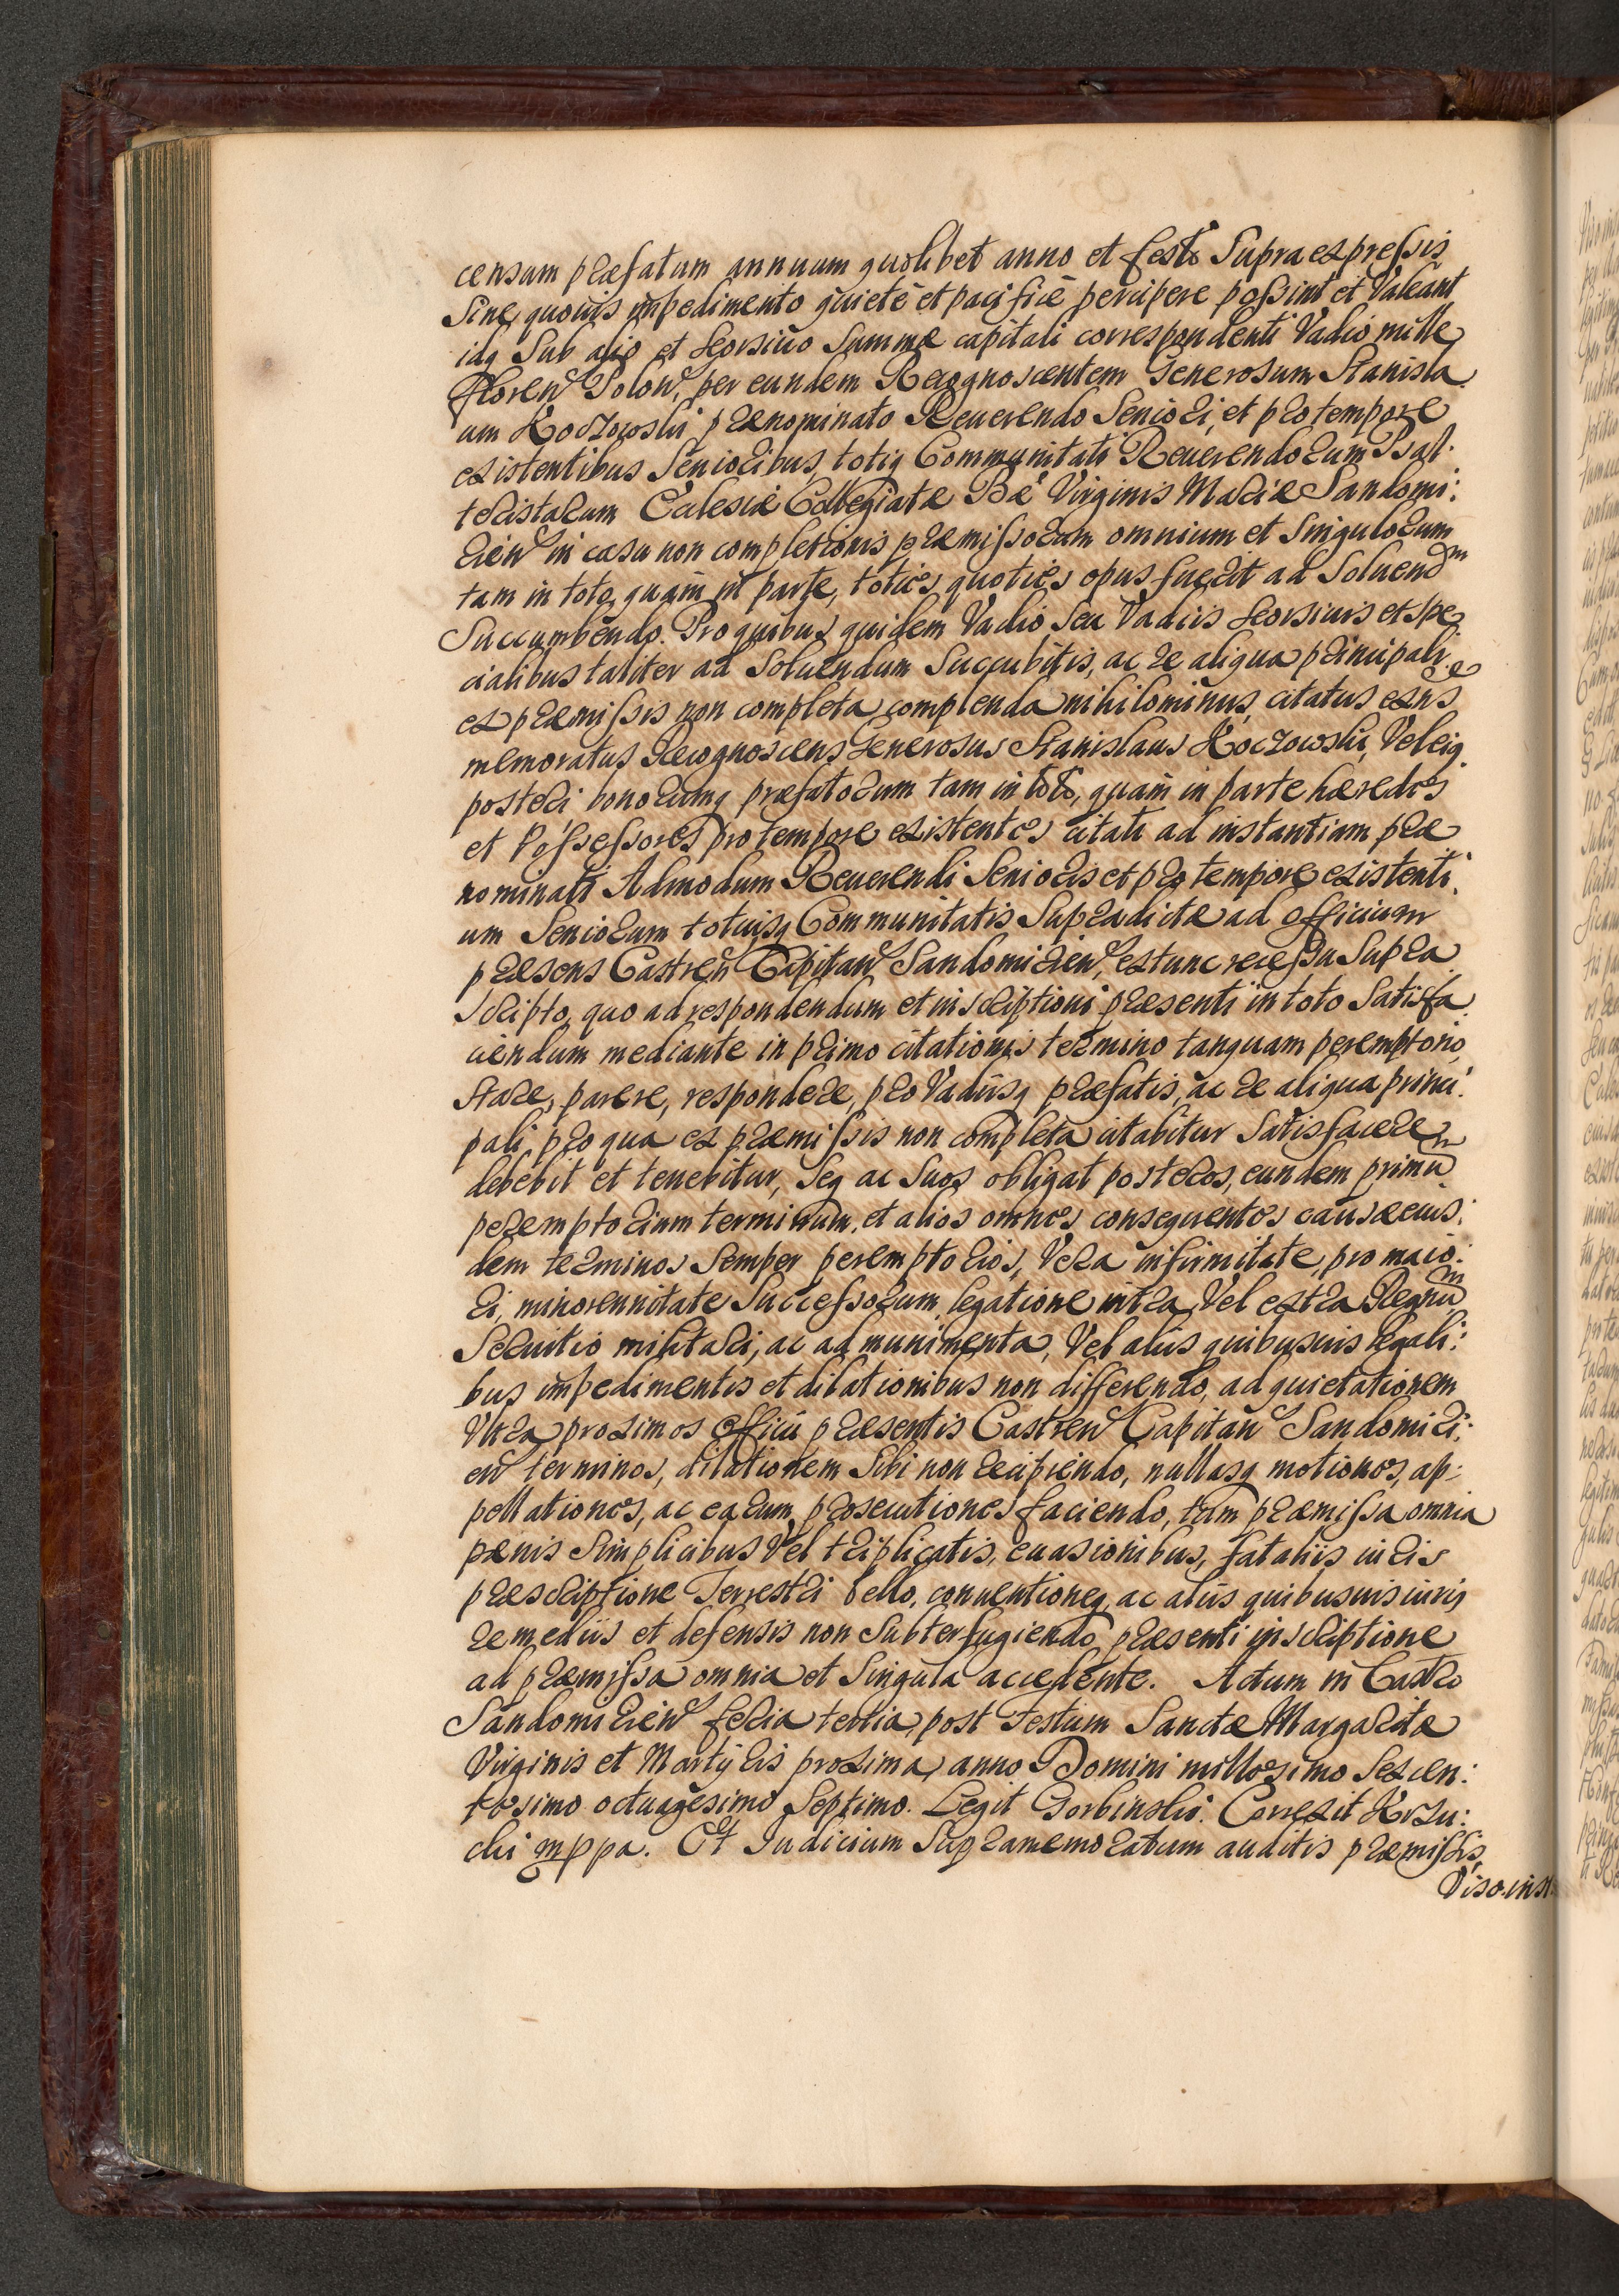 censum præfatum annuum quolibet anno et festo Supra expressis
Sine quouis impedimento quietè et pacificè percipere possint et Valeant
idq Sub alio et seorsiuo Summæ capitali correspondenti Vadio mille
florenˀ Polonˀ, per eundem Recognoscentem Generosum Stanisla
um Koczowski prænominato Reuerendo Seniori, et pro tempore
existentibus Senioribus, totiq Communitati Reuerendorum Psal:
teristarum Ecclesiæ Collegiatæ Bæ Virginis Mariæ Sandomi:
rienˀ in casu non completionis præmissorum omnium et Singulorum
tam in toto, quàm in parte, toties quoties opus fuerit ad Soluendm
Succumbendo. Pro quibus quidem Vadio, Seu Vadiis seorsiuis et spe
cialibus taliter ad Soluendum Succubitis, ac re aliqua principali
ex præmissis non completa complenda nihilominus citatus exns
memoratus Recognoscens Generosus Stanislaus Koczowski, Vel eiq
posteri, bonorumq præfatorum tam in toto, quàm in parte hæredes
et Possessores pro tempore existentes citati ad instantiam præ
nominati Admodum Reuerendi Senioris et pro tempore existenti:
um Seniorum totiusq Communitatis Supradictæ ad officium
præsens Castrenˀ Capitanˀ Sandomirienˀ, extunc recessu Supra
scripto, quo ad respondendum et inscriptioni præsenti in toto Satisfa
ciendum mediante in primo citationis termino tanquam peremptorio,
stare, parere, respondere, pro Vadiisq præfatis, ac re aliqua princi:
pali pro qua ex præmissis non completa citabitur Satisfacere
debebit et tenebitur, Seq ac Suos obligat posteros, eundem primum
peremptorium terminum, et alios omnes consequentes causæ eius:
dem terminos Semper peremptorios, Vera infirmitate, pro maio:
ri, minorennitate Successorum, legatione intra, Vel extra Regnum
Seruitio militari, ac ad munimenta, Vel aliis quibusuis legali:
bus impedimentis et dilationibus non differendo, ad quietationem
Vltra proximos Officii præsentis Castrenˀ Capitanˀ Sandomiri:
enˀ terminos, dilationem Sibi non recipiendo, nullasq motiones, ap:
pellationes, ac earum prosecutiones faciendo, tum præmissa omnia
pænis Simplicibus Vel triplicatis, euasionibus, fataliis iuris
præscriptione Terrestri bello, conuentioneq, ac aliis quibusuis iuris
remediis et defensis non Subterfugiendo præsenti inscriptione
ad præmissa omnia et Singula accedente. Actum in Castro
Sandomirienˀ feria tertia, post Festum Sanctæ Margaritæ
Virginis et Martyris proxima, anno Domini millesimo Sexcen:
tesimo octuagesimo Septimo. Legit Gorbinski. Correxit Krzu:
cki mppa. Et Iudicium Supramemoratum auditis præmissis,
Viso inst